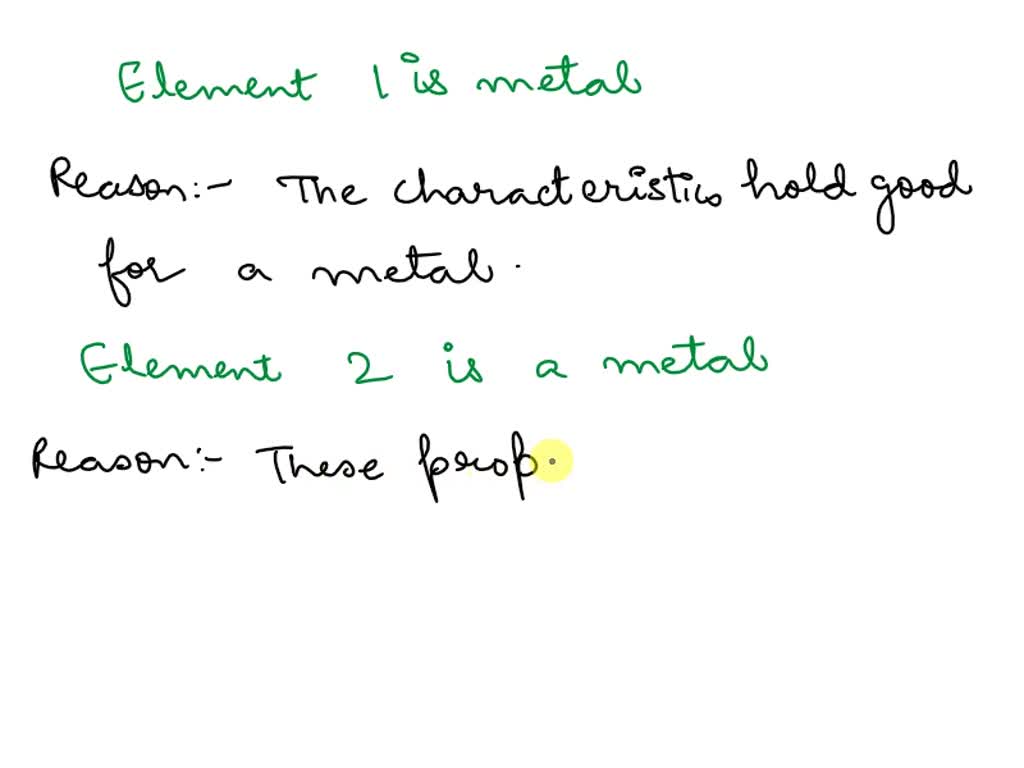 Element 1 is metal
Reason:- The characteristics hold good
for a metal.
Element 2 is a metal
Reason:- These prop